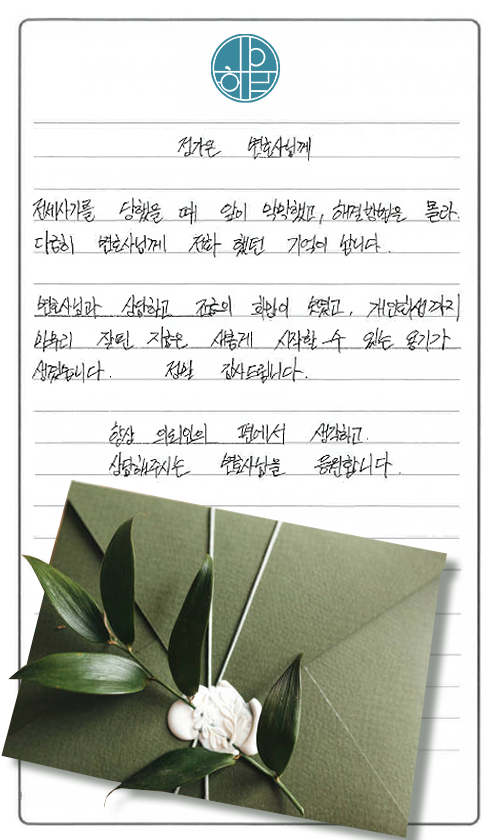 변호사님께
전세사기를 당했을 때 앞이 막막했고, 해결방법을 몰라.
다급히 변호사님께 전화 했던 기억이 납니다.
변호사님과 상담하고 희망이 보였고, 개인회생까지
마무리 잘된 지금은 새롭게 시작할 수 있는 용기가
생겼습니다. 정말 감사드립니다.
항상 의뢰인의 편에서 생각하고.
상담해주시는 변호사님을 응원합니다.